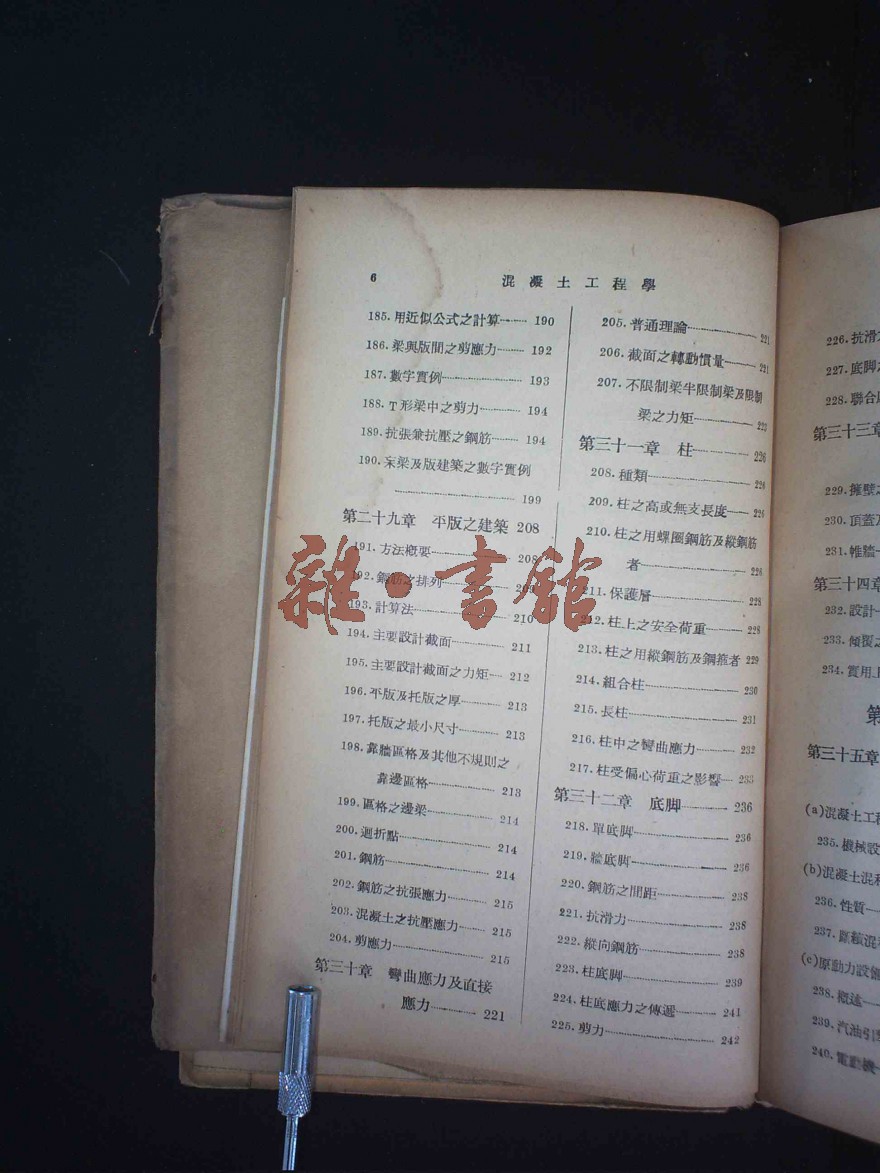 6 混凝土工程學
185. 用近似公式之計算 190
186. 梁與版間之剪應力 192
187. 數字實例 193
188. T形梁中之剪力 194
189. 抗張兼抗壓之鋼筋 194
190. 梁及版建築之數字實例
199
第二十九章 平版之建築 208
191. 方法概要 208
192. 鋼筋之排列 209
193. 計算法 210
194. 主要設計截面 211
195. 主要設計截面之力矩 212
196. 平版及托版之厚 213
197. 托版之最小尺寸 213
198. 靠牆區格及其他不規則之
靠邊區格 213
199. 區格之邊梁 214
200. 迴折點 214
201. 鋼筋 214
202. 鋼筋之抗張應力 215
203. 混凝土之抗壓應力 215
204. 剪應力 215
第三十章 彎曲應力及直接
應力 221
205. 普通理論 221
206. 截面之轉動慣量 221
207. 不限制梁半限制梁及限制
梁之力矩 223
第三十一章 柱 226
208. 種類 226
209. 柱之高或無支長度 226
210. 柱之用螺圈鋼筋及縱鋼筋
者 226
211. 保護層 228
212. 柱上之安全荷重 228
213. 柱之用縱鋼筋及鋼箍者 229
214. 組合柱 230
215. 長柱 231
216. 柱中之彎曲應力 232
217. 柱受偏心荷重之影響 233
第三十二章 底脚 236
218. 單底脚 236
219. 牆底脚 236
220. 鋼筋之間距 238
221. 抗滑力 238
222. 縱向鋼筋 238
223. 柱底脚 239
224. 柱底應力之傳遞 241
225. 剪力 242
226. 抗滑
227. 底脚
228. 聯合
第三十三章
229. 擁壁
230. 頂蓋
231. 帷牆
第三十四章
232. 設計
233. 傾覆
234. 實用
第
第三十五章
(a) 混凝土工程
235. 機械設
(b) 混凝土混
236. 性質
237.
(c) 原動力設備
238. 概述
239. 汽油引
240. 電動機
雜·書館